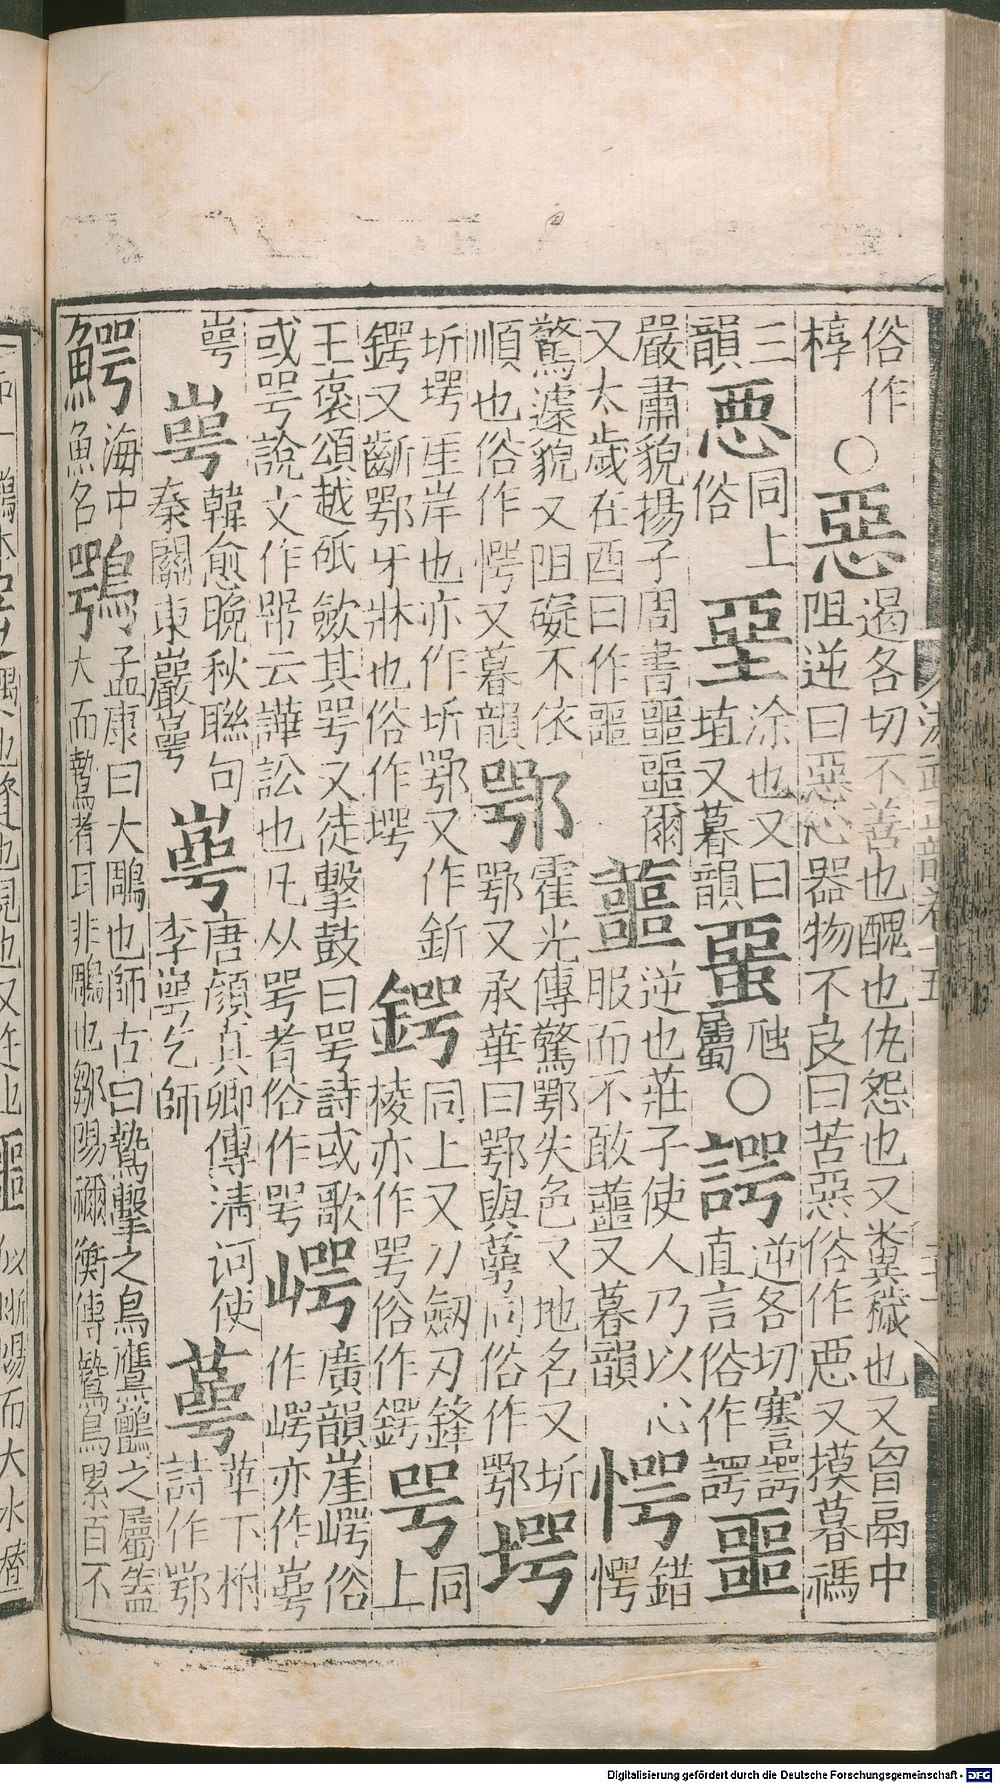 俗作椁○惡遏各切不善也醜也仇怨也又糞穢也又曾鬲中阻逆曰惡心器物不良曰苦惡俗作悪又摸暮禡
三韻悪同上俗堊涂也又曰埴又暮韻蝁虺屬○諤逆各切謇諤直言俗作諤噩
嚴肅貌揚子周書噩噩爾又太歲在酉曰作噩蘁逆也莊子使人乃以心服而不敢蘁又暮韻愕錯愕
驚遽貌又阻礙不依順也俗作愕又暮韻鄂霍光傳驚鄂失色又地名又圻鄂又承華曰鄂與萼同俗作鄂堮
圻堮厓岸也亦作圻鄂又作釿鍔又齗鄂牙牀也俗作堮鍔同上又刀劒刃鋒棱亦作咢俗作鍔咢同上
王褒頌越砥歛其咢又徒擊鼓曰咢詩或歌或咢說文作㖾云譁訟也凡从咢者俗作咢崿廣韻崖崿俗作崿亦作㟧
㟧㟧韓愈晚秋聯句秦關東巖㟧萼唐顏真卿傳淸河使李萼乞師萼華下柎詩作鄂
鰐海中魚名鶚孟康曰大鵰也師古曰鷙擊之鳥鷹鸇之屬盖大而鷙者耳非鵰也鄒陽禰衡傳鷙鳥絫百不
Digitalisierung gefördert durch die Deutsche Forschungsgemeinschaft - DFG